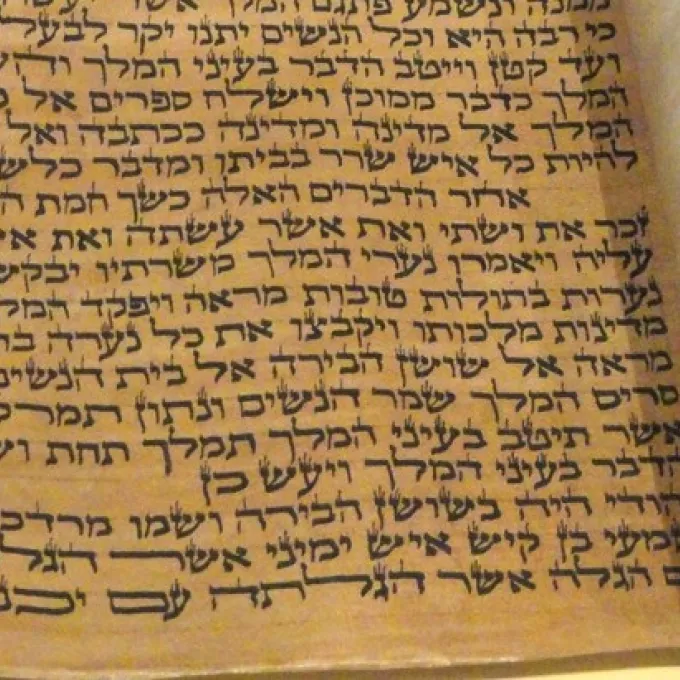 ממנה ונשמע פתגם המלך אשר יעש
כי רבה היא וכל הנשים יתנו יקר לבעל
ועד קטן וייטב הדבר בעיני המלך והש
המלך כדבר ממוכן וישלח ספרים אל
המלך אל מדינה ומדינה ככתבה ואל
להיות כל איש שרר בביתו ומדבר כלש
אחר הדברים האלה כשך חמת ה
זכר את ושתי ואת אשר עשתה ואת א
עליה ויאמרו נערי המלך משרתיו יבקש
נערות בתולות טובות מראה ויפקד המל
מדינות מלכותו ויקבצו את כל נערה ב
מראה אל שושן הבירה אל בית הנשים
סריס המלך שמר הנשים ונתון תמר
אשר תיטב בעיני המלך תמלך תחת וש
הדבר בעיני המלך ויעש כן
הודי היה בשושן הבירה ושמו מרדכ
מעי בן קיש איש ימיני אשר הגל
ם הגלה אשר הגלתה עם יכנ